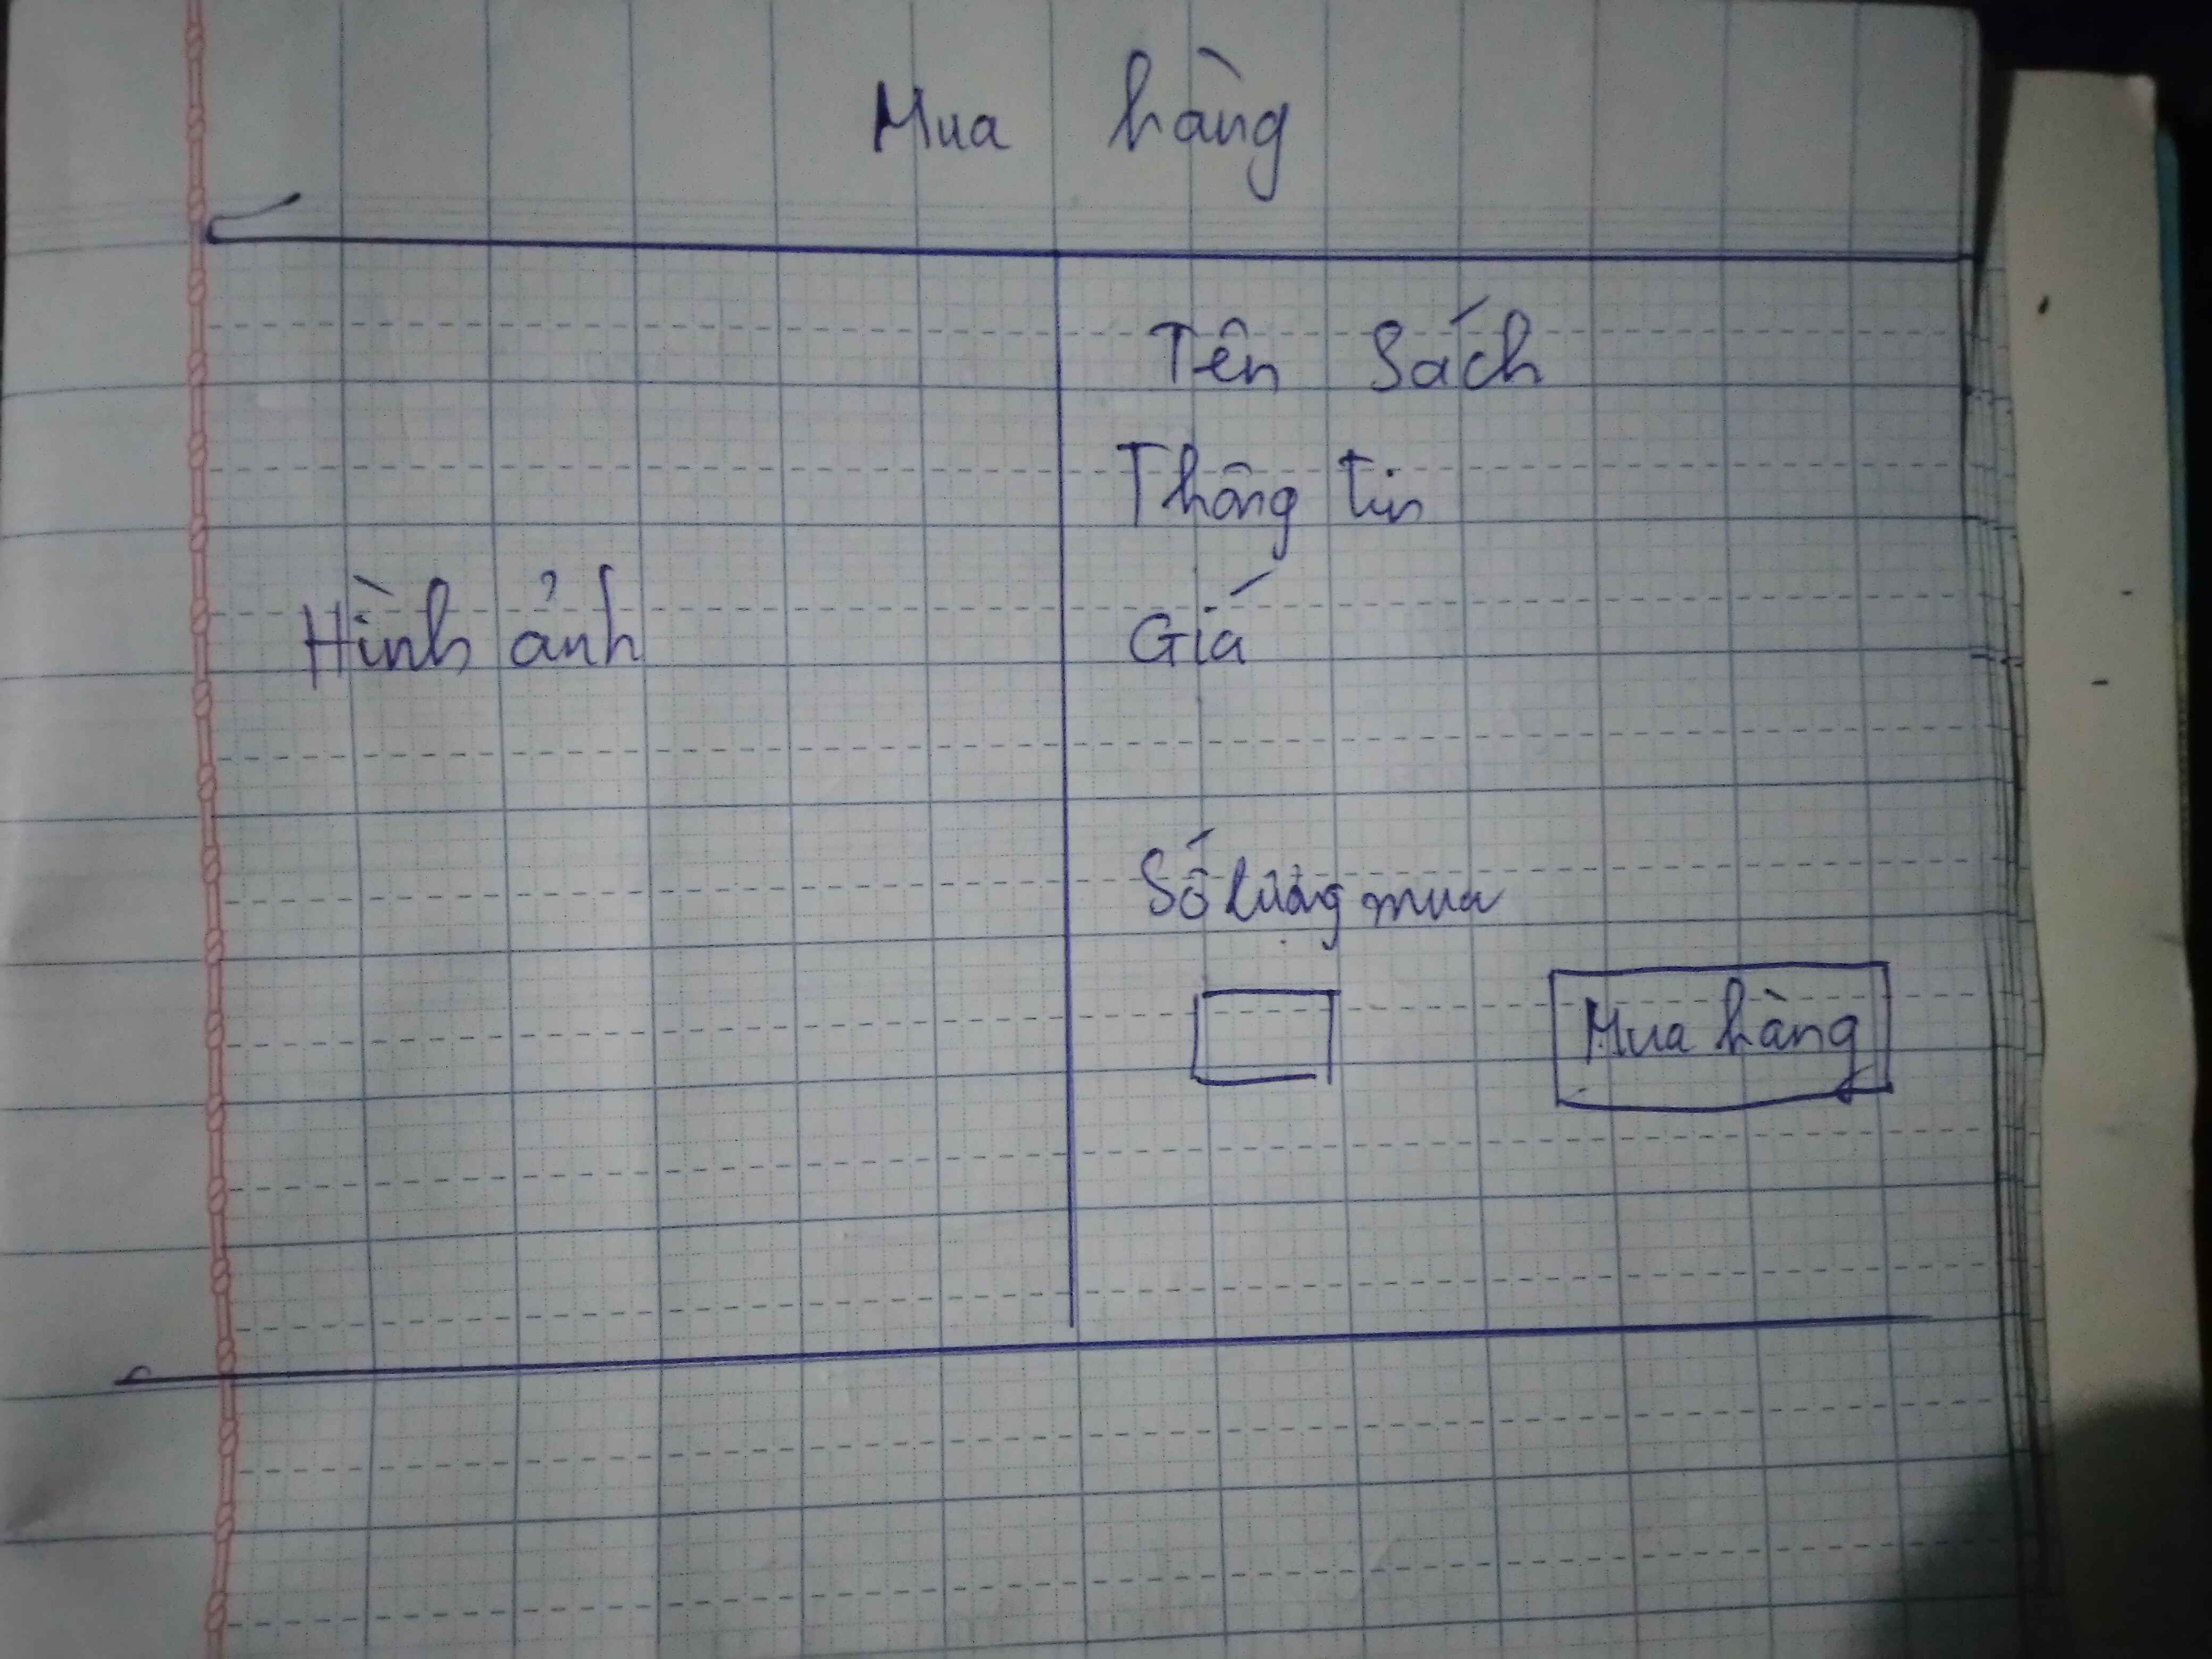 Mua hàng
Hình ảnh
Tên Sách
Thông tin
Giá
Số lượng mua
Mua hàng